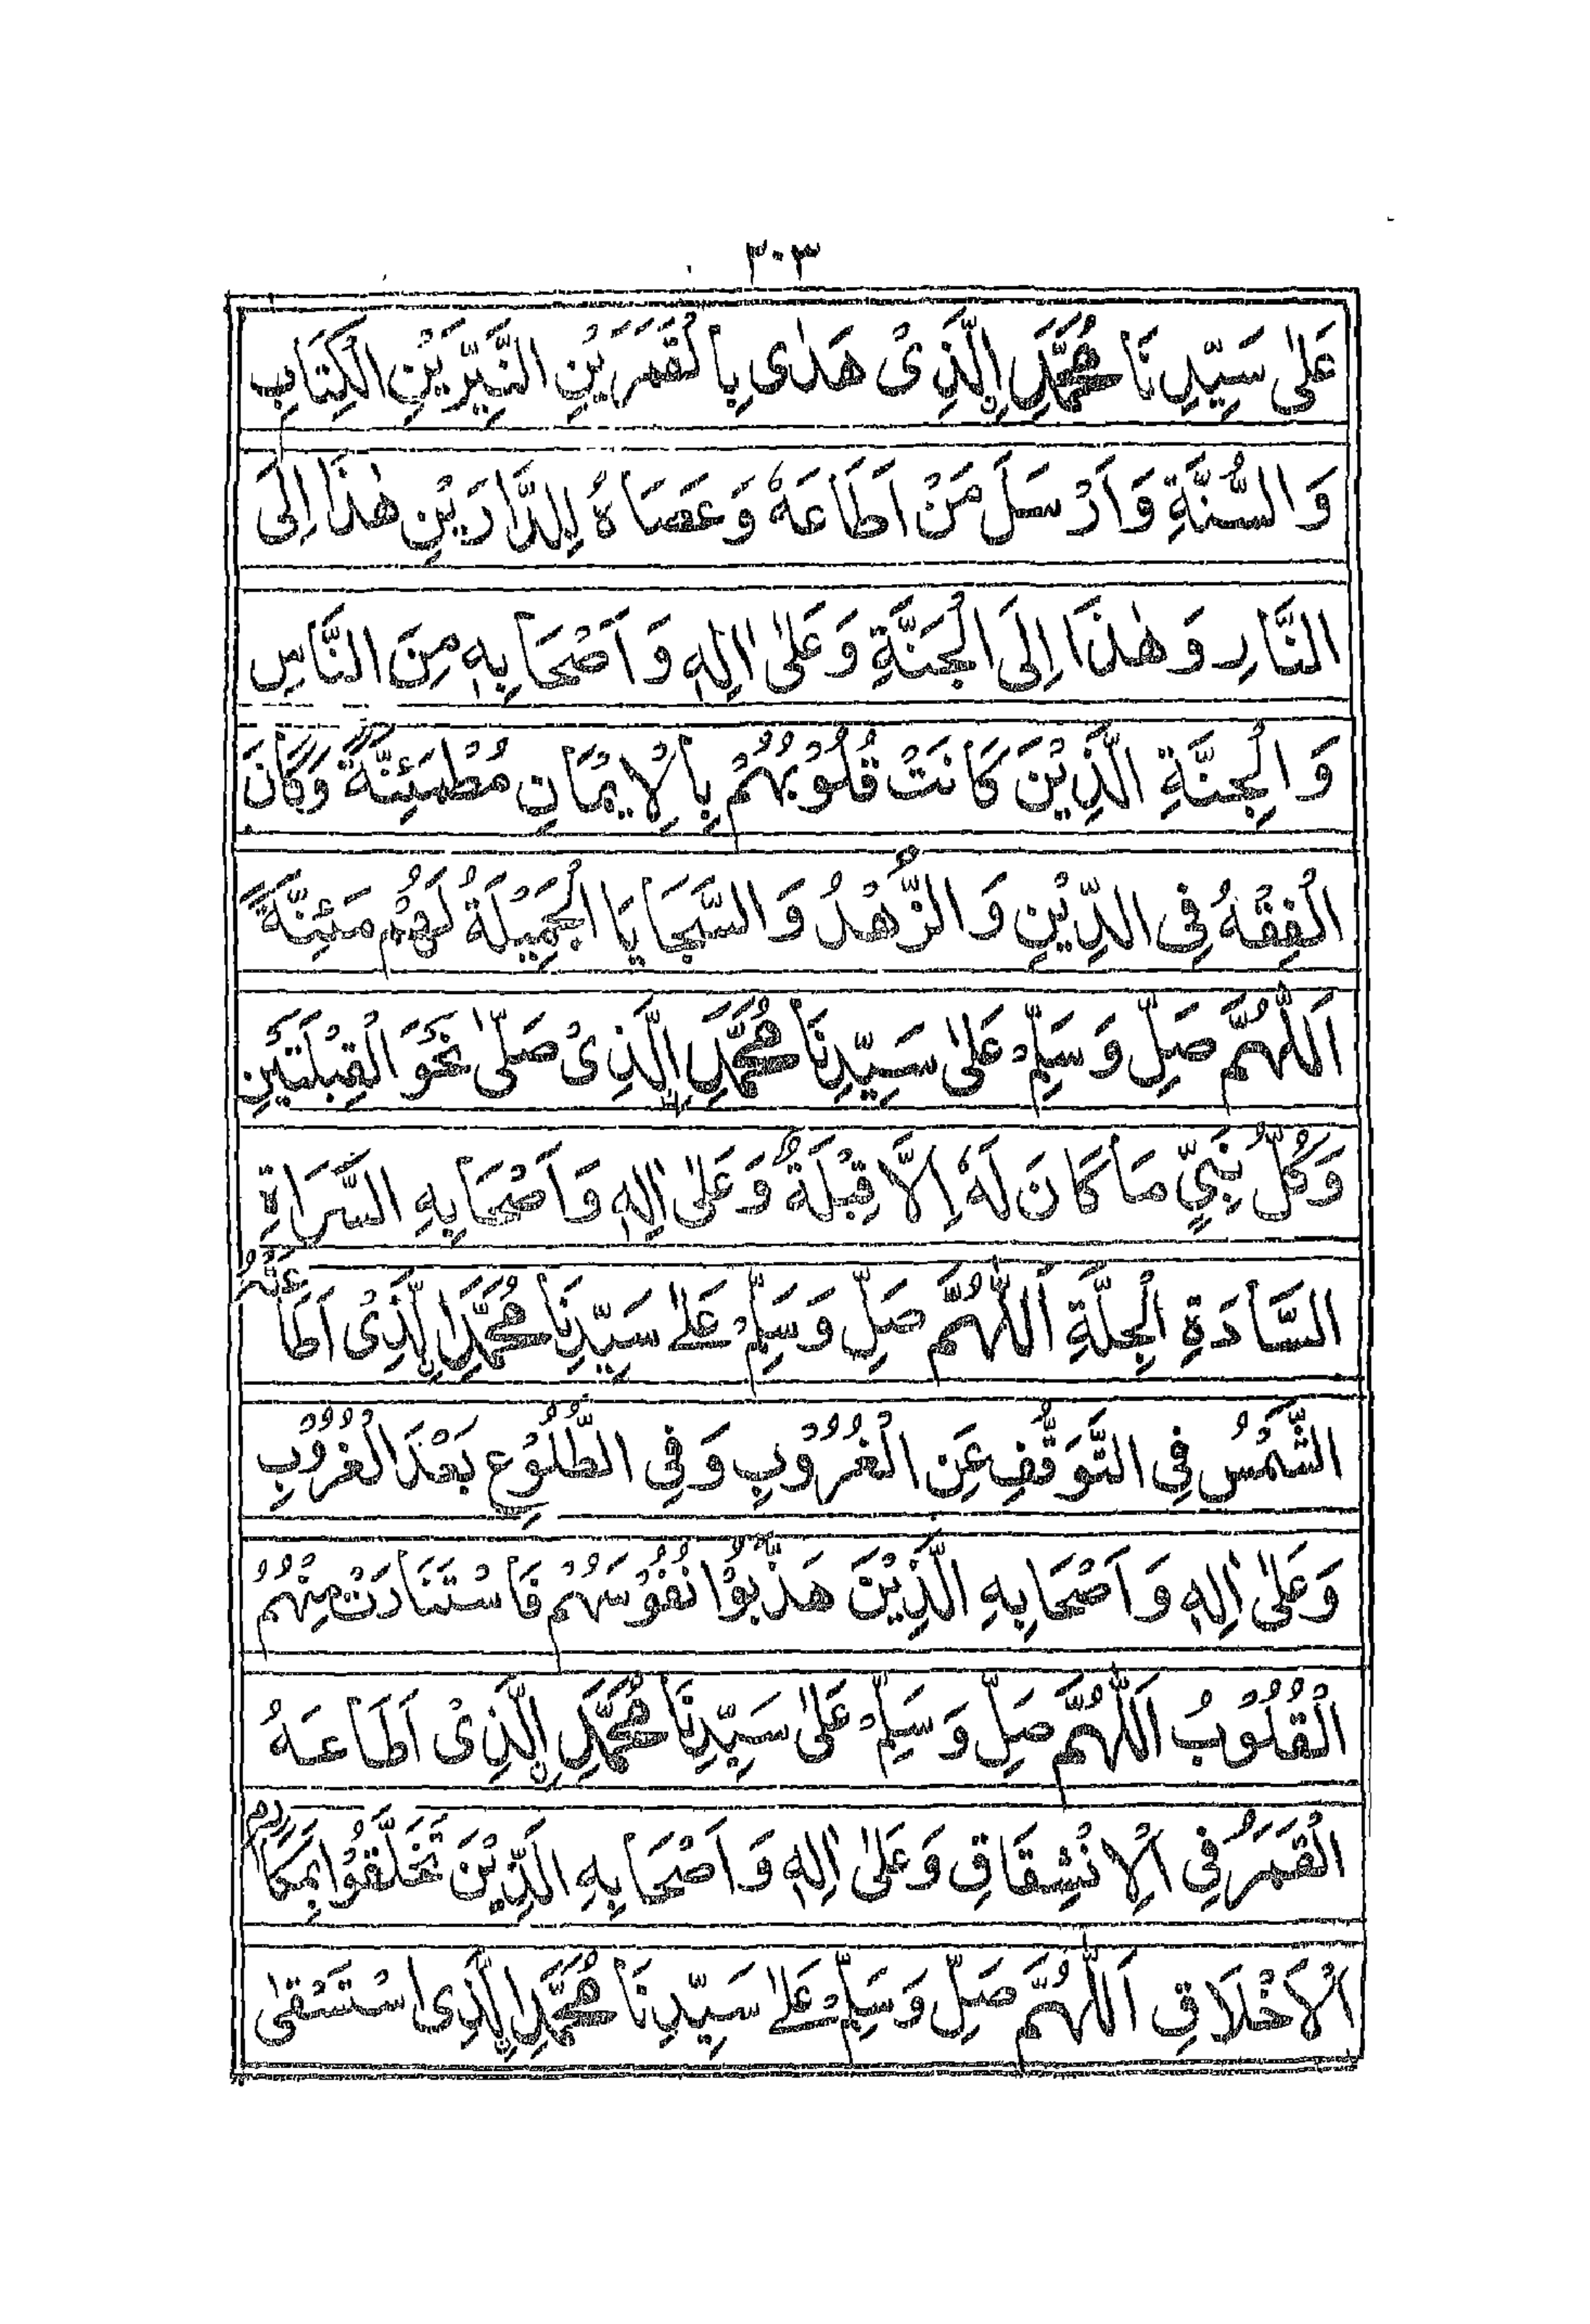 ٣٠٣
عَلٰى سَيِّدِنَا مُحَمَّدِ اِلَّذِىْ هَدٰى بِالْقَمَرَيْنِ النَّيِّرَيْنِ الْكِتَابِ
وَالسُّنَّةِ وَاَرْسَلَ مَنْ اَطَاعَهٗ وَعَصَاهُ لِلدَّارَيْنِ هٰذَا اِلَى
النَّارِ وَهٰذَا اِلَى الْجَنَّةِ وَعَلٰى اٰلِهٖ وَاَصْحَابِهٖ مِنَ النَّاسِ
وَالْجِنَّةِ الَّذِيْنَ كَانَتْ قُلُوْبُهُمْ بِالْاِيْمَانِ مُطْمَئِنَّةً وَكَانَ
الْفِقْهُ فِى الدِّيْنِ وَالزُّهْدُ وَالسَّجَايَا الْجَمِيْلَةُ لَهُمْ مَئِنَّةً
اَللّٰهُمَّ صَلِّ وَسَلِّمْ عَلٰى سَيِّدِنَا مُحَمَّدِ اِلَّذِىْ صَلّٰى نَحْوَ الْقِبْلَتَيْنِ
وَكُلُّ نَبِيٍّ مَا كَانَ لَهٗ اِلَّا قِبْلَةٌ وَعَلٰى اٰلِهٖ وَاَصْحَابِهِ السَّرَاةِ
السَّادَةِ الْجِلَّةِ اَللّٰهُمَّ صَلِّ وَسَلِّمْ عَلٰے سَيِّدِنَا مُحَمَّدِ اِلَّذِىْ اَطَاعَتْهُ
الشَّمْسُ فِى التَّوَقُّفِ عَنِ الْغُرُوْبِ وَفِى الطُّلُوْعِ بَعْدَ الْغُرُوْبِ
وَعَلٰى اٰلِهٖ وَاَصْحَابِهِ الَّذِيْنَ هَذَّبُوْا نُفُوْسَهُمْ فَاسْتَنَارَتْ مِنْهُمُ
الْقُلُوْبُ اَللّٰهُمَّ صَلِّ وَسَلِّمْ عَلٰى سَيِّدِنَا مُحَمَّدِ اِلَّذِىْ اَطَاعَهُ
الْقَمَرُ فِى الْاِنْشِقَاقِ وَعَلٰى اٰلِهٖ وَاَصْحَابِهِ الَّذِيْنَ تَخَلَّقُوْا بِمَكَارِمِ
الْاَخْلَاقِ اَللّٰهُمَّ صَلِّ وَسَلِّمْ عَلٰے سَيِّدِنَا مُحَمَّدِ اِلَّذِى اسْتَسْقٰى